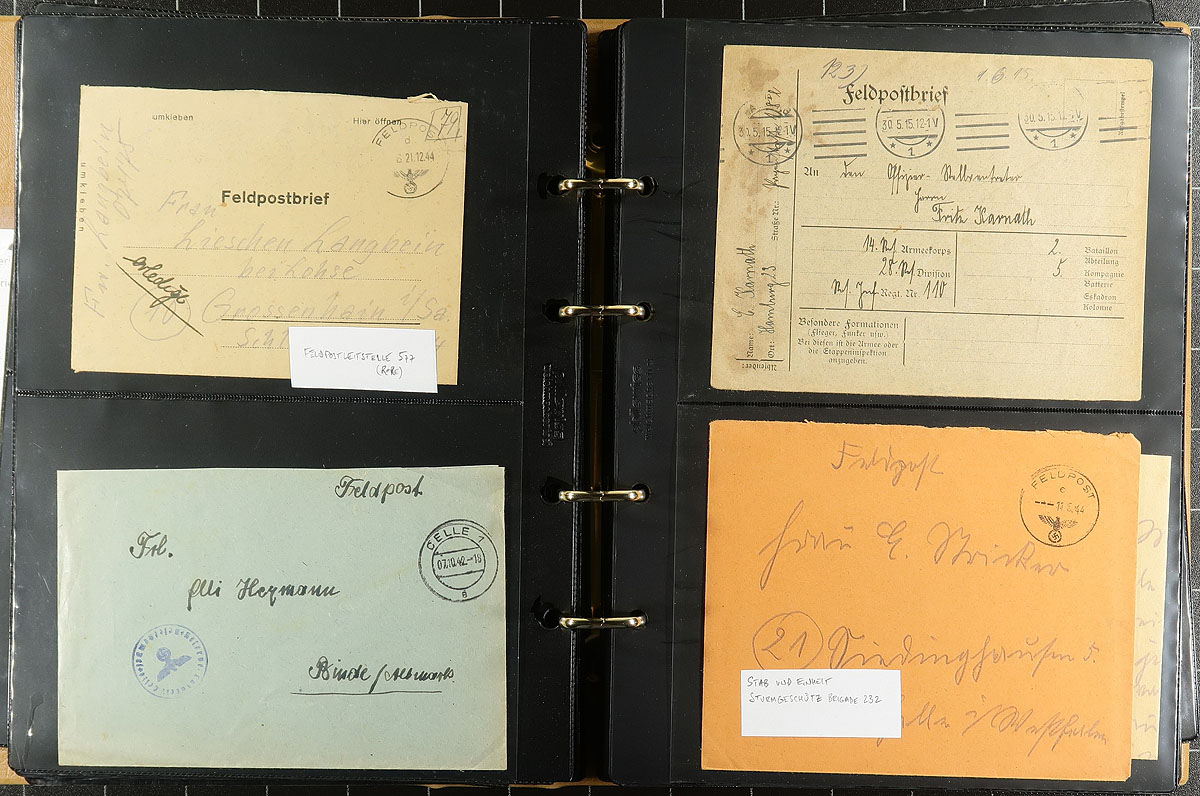 umkleben
Hier öffnen
umkleben
FELDPOST
d
21.12.44
Feldpostbrief
Frau
Lieschen Langbein
bei Lohse
erledigt
(10) Grossenhain/Sa.
FELDPOSTLEITSTELLE 577
Feldpost
CELLE 1
07.10.42.-18
a
Frl.
Elli Heymann
Binde/Altmark.
1.6.15.
Feldpostbrief
30.5.15.12-1V
1
30.5.15.12-1V
1
An den Offizier-Stellvertreter
Herrn
Fritz Karnath
14. Res. Armeekorps
28. Res. Division
Res. Inf. Regt. Nr. 110
2. Bataillon
Abteilung
5. Kompagnie
Batterie
Eskadron
Kolonne
Besondere Formationen
(Flieger, Funker usw.)
Bei diesen ist die Armee oder
die Etappeninspektion
anzugeben.
Absender:
Name: E. Karnath
Ort: Hamburg 23
Straße Nr.:
Feldpost
FELDPOST
c
11.5.44
Frau E Stricker
(21) Siedinghausen
STAB UND EINHEIT
STURMGESCHÜTZ BRIGADE 232
i/ Westfalen